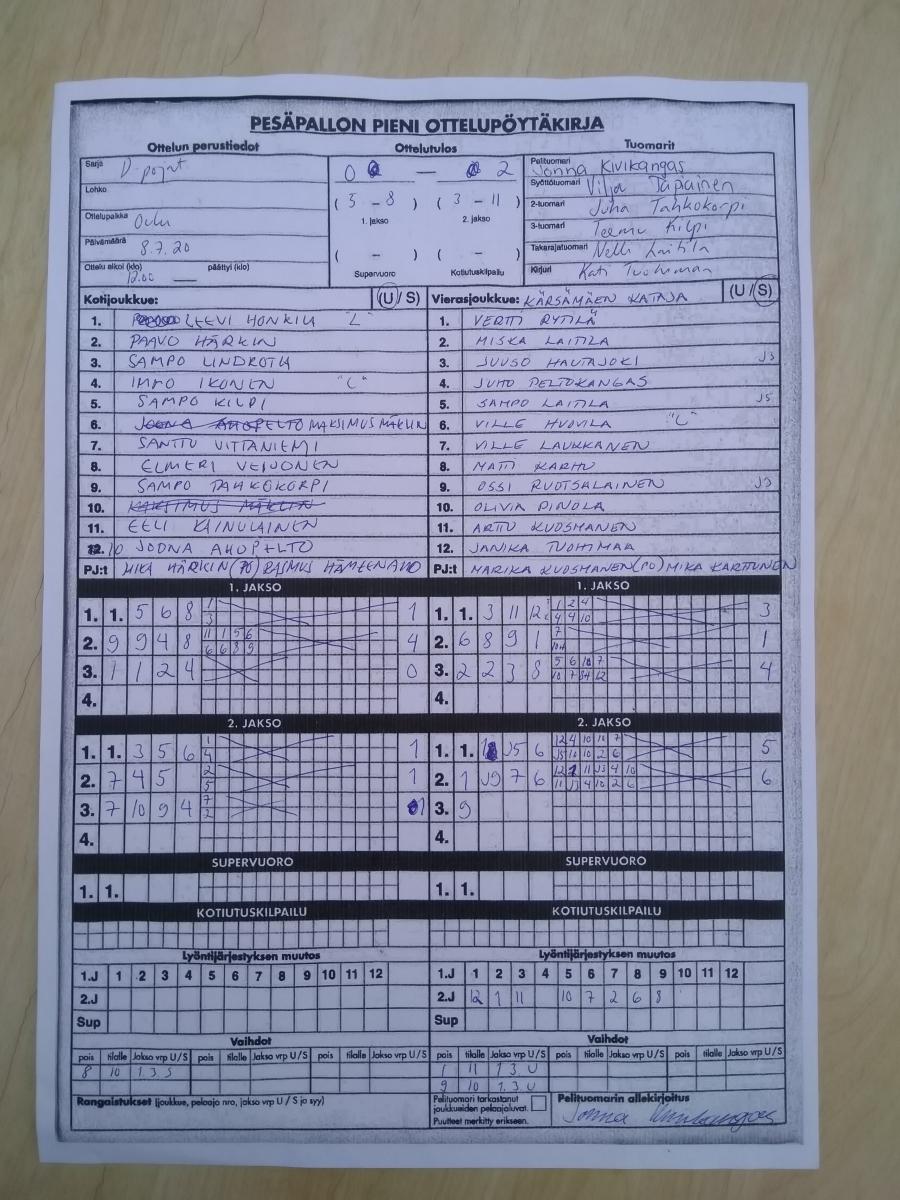 PESÄPALLON PIENI OTTELUPÖYTÄKIRJA
Ottelun perustiedot
Sarja D-pojat
Lohko
Ottelupaikka Oulu
Päivämäärä 8.7.20
Ottelu alkoi (klo) 12.00 päättyi (klo)
Ottelutulos
0 — 2
(5 - 8) (3 - 11)
1. jakso 2. jakso
( - ) ( - )
Supervuoro Kotiutuskilpailu
Tuomarit
Pelituomari Jonna Kivikangas
Syöttötuomari Vilja Tapiainen
2-tuomari Juha Tahkokorpi
3-tuomari Teemu Kilpi
Takarajatuomari Nelli Laitila
Kirjuri Kati Tuohimaa
Kotijoukkue: (U / S)
1. LEEVI HONKILA "L"
2. PAAVO HÄRKIN
3. SAMPO LINDROTH
4. IMMO IKONEN "C"
5. SAMPO KILPI
6. JOONA AHOPELTO MAKSIMUS MÄKLIN
7. SANTTU VITTANIEMI
8. ELMERI VEIJONEN
9. SAMPO TAHKOKORPI
10. MAKSIMUS MÄKLIN
11. EELI KAINULAINEN
12. 10 JOONA AHOPELTO
PJ:t MIKA HÄRKIN (PO) RASMUS HÄMEENAHO
Vierasjoukkue: KÄRSÄMÄEN KATAJA (U / S)
1. VERTTI RYTILÄ
2. MISKA LAITILA
3. JUUSO HAUTAJOKI J3
4. JUHO PELTOKANGAS
5. SAMPO LAITILA J5
6. VILLE HUOVILA "L"
7. VILLE LAUKKANEN
8. MATTI KARHU
9. OSSI RUOTSALAINEN J9
10. OLIVIA PINOLA
11. ARTTU KUOSMANEN
12. JANIKA TUOHIMAA
PJ:t MARIKA KUOSMANEN (PO) MIKA KARTTUNEN
1. JAKSO
1. 1. 5 6 8 1 3 1
2. 9 9 4 8 11 1 5 6 6 6 8 9 4
3. 1 1 2 4 0
4.
1. JAKSO
1. 1. 3 11 12 1 2 4 4 4 10 3
2. 6 8 9 1 7 1
3. 2 2 3 8 5 6 10 7 10 7 12 4
4.
2. JAKSO
1. 1. 3 5 6 1 4 1
2. 7 4 5 2 5 1
3. 7 10 9 4 7 2 1
4.
2. JAKSO
1. 1. J5 6 12 4 10 10 7 J5 10 10 2 6 5
2. 1 J9 7 6 12 11 J3 4 10 11 J3 4 10 2 6 6
3. 9
4.
SUPERVUORO
1. 1.
SUPERVUORO
1. 1.
KOTIUTUSKILPAILU
KOTIUTUSKILPAILU
Lyöntijärjestyksen muutos
1.J 1 2 3 4 5 6 7 8 9 10 11 12
2.J
Sup
Lyöntijärjestyksen muutos
1.J 1 2 3 4 5 6 7 8 9 10 11 12
2.J 12 1 11 10 7 2 6 8
Sup
Vaihdot
pois tilalle Jakso vrp U/S pois tilalle Jakso vrp U/S pois tilalle Jakso vrp U/S
8 10 1. 3. S
Vaihdot
pois tilalle Jakso vrp U/S pois tilalle Jakso vrp U/S pois tilalle Jakso vrp U/S
1 11 1. 3. U
9 10 1. 3. U
Rangaistukset (joukkue, pelaaja nro, jakso vrp U / S ja syy)
Pelituomari tarkastanut
joukkueiden pelaajaluvat.
Puutteet merkitty erikseen.
Pelituomarin allekirjoitus
Jonna Kivikangas